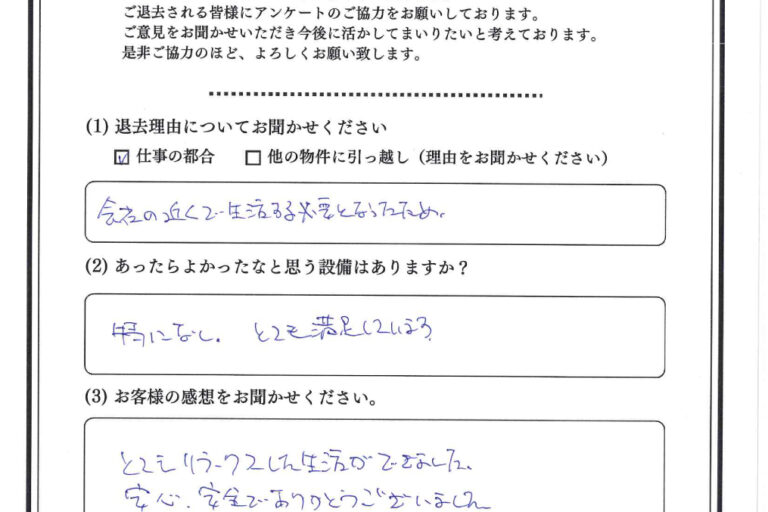 ご退去される皆様にアンケートのご協力をお願いしております。
ご意見をお聞かせいただき今後に活かしてまいりたいと考えております。
是非ご協力のほど、よろしくお願い致します。
(1) 退去理由についてお聞かせください
☑ 仕事の都合 □ 他の物件に引っ越し（理由をお聞かせください）
会社の近くで生活する必要となったため。
(2) あったらよかったなと思う設備はありますか？
特になし。 とても満足しています
(3) お客様の感想をお聞かせください。
とてもリラックスした生活ができました。
安心、安全でありがとうございました